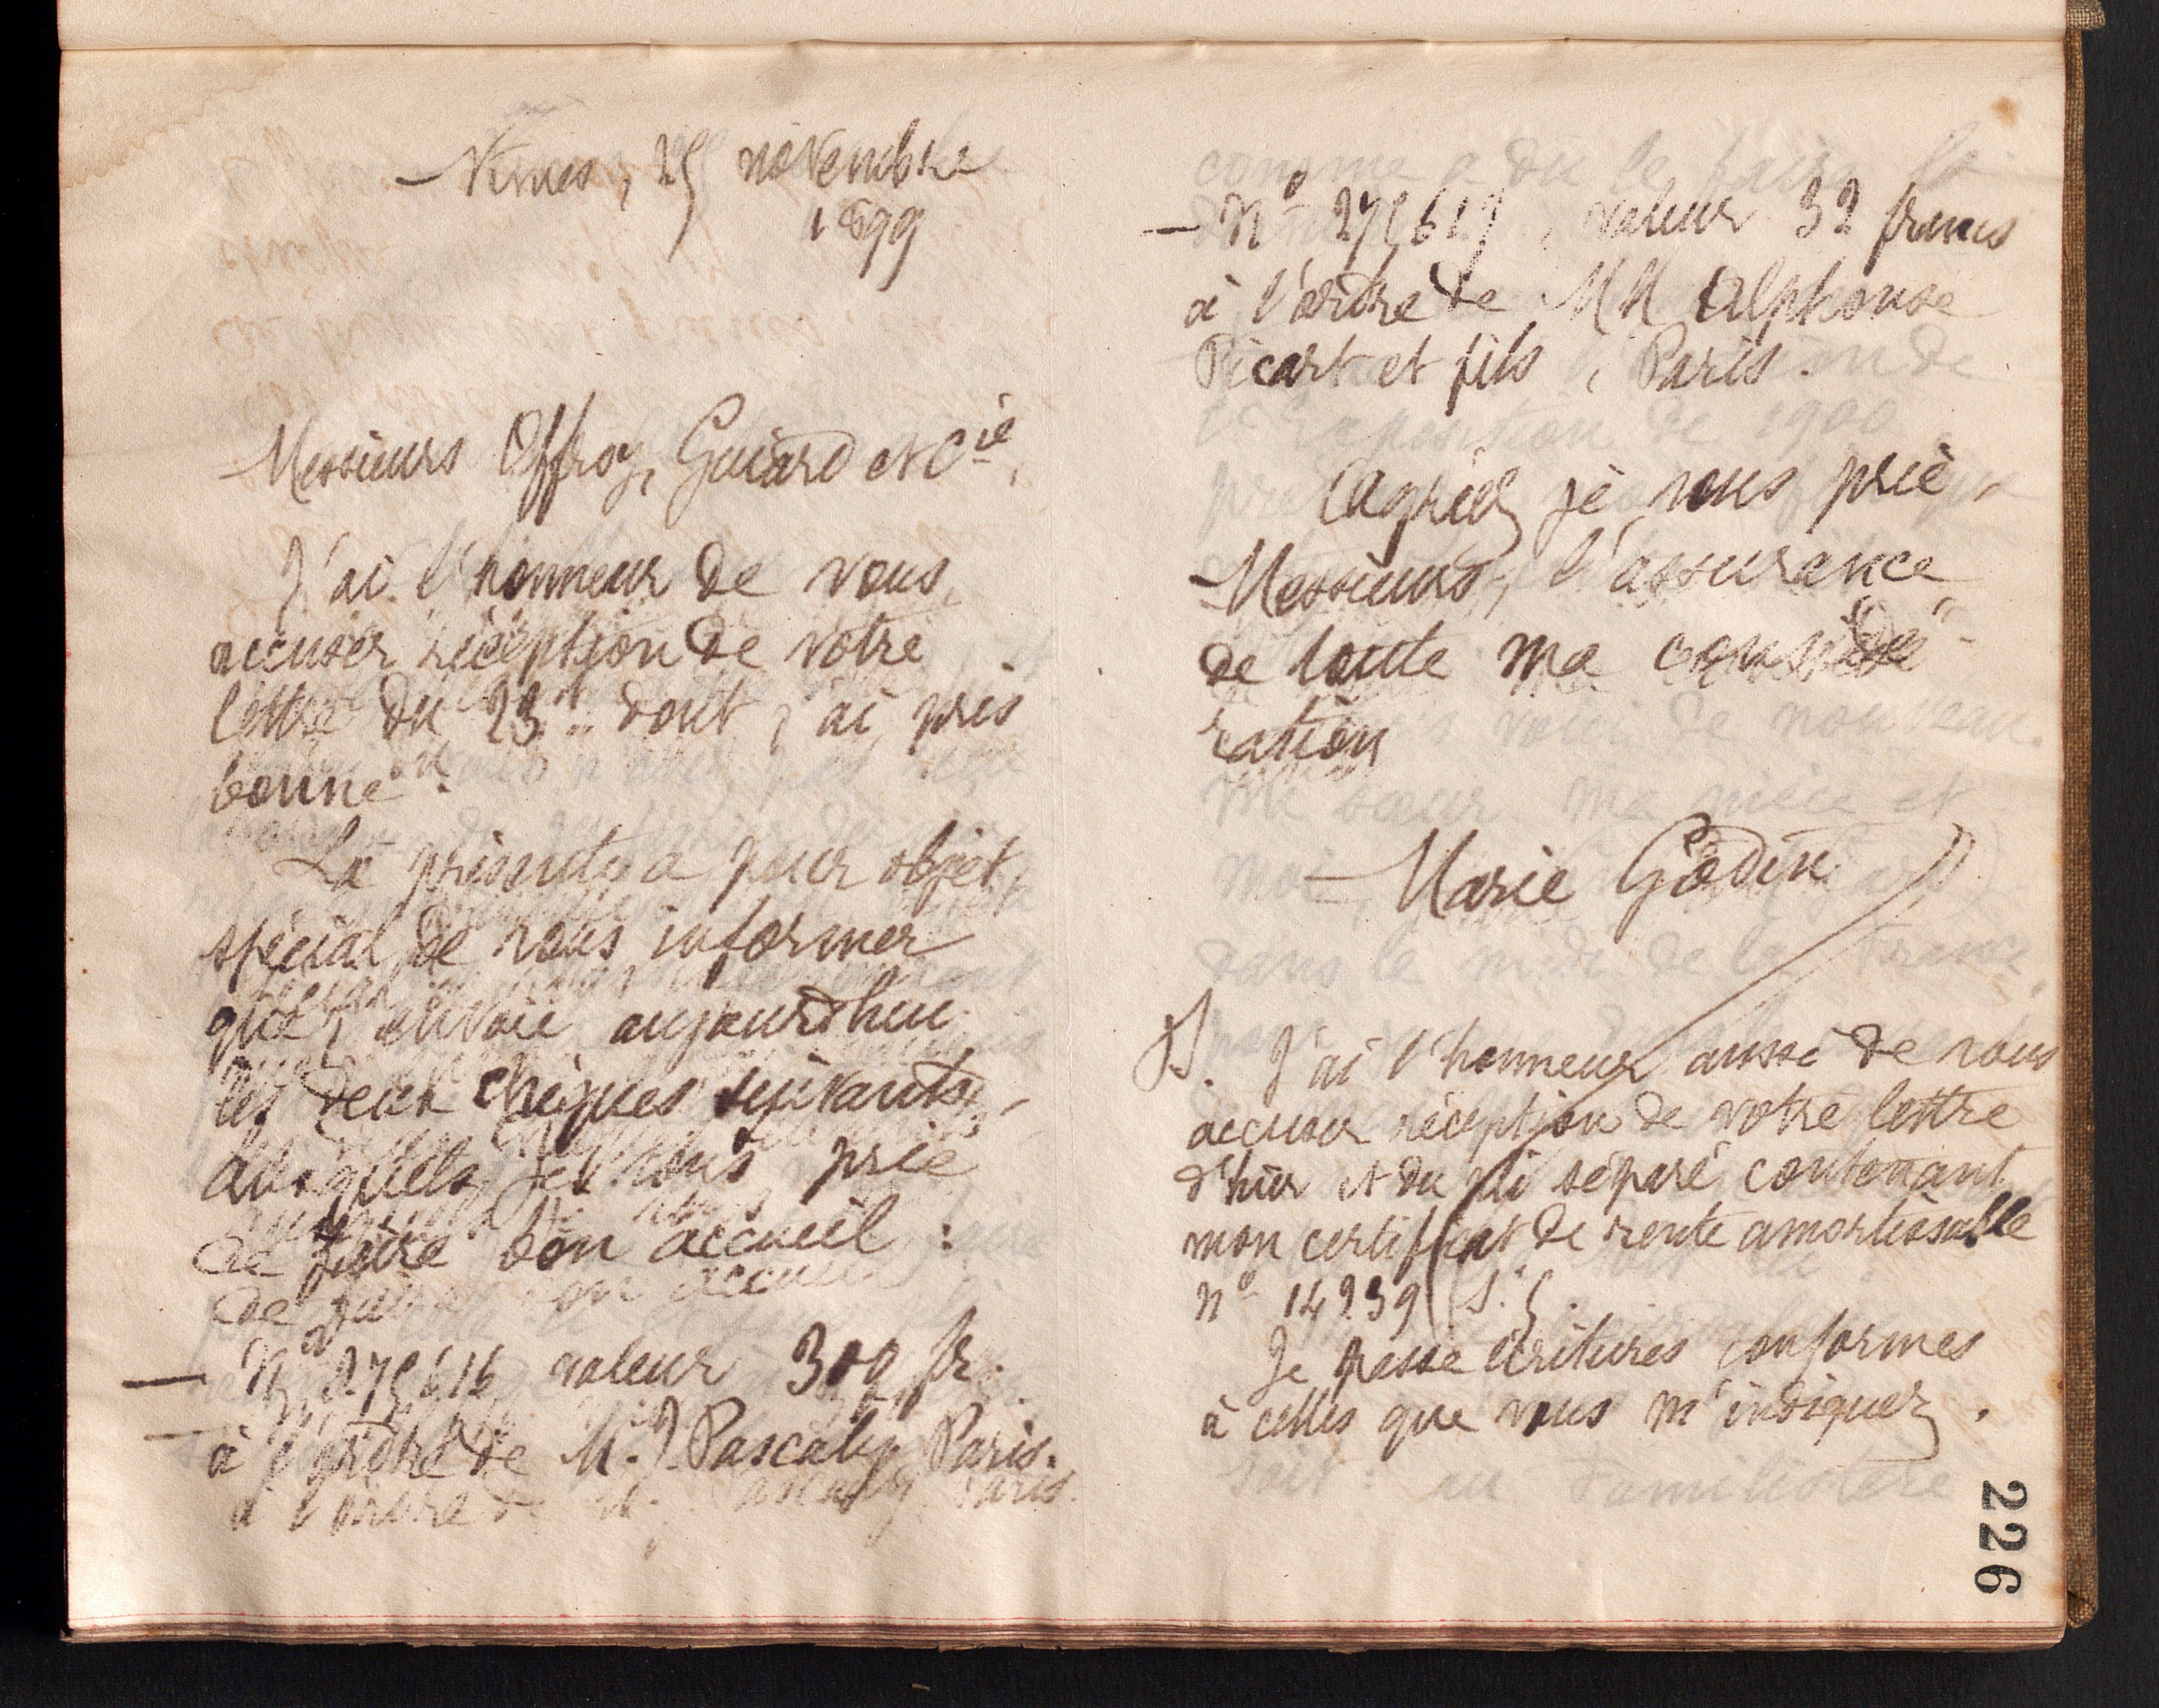 Nîmes, 25 novembre
1899
Messieurs Offroy, Guiard et Cie,
J'ai l'honneur de vous
accuser réception de votre
lettre du 23 dont j'ai pris
bonne
La présente a pour objet
spécial de vous informer
que j'envoie aujourd'hui
les deux chèques suivants,
auxquels je vous prie
de faire bon accueil :
— No 275616 valeur 300 fr.
à l'ordre de M. J. Pascaly, Paris.
— No 275617, valeur 32 francs
à l'ordre de MM Alphonse
Picart et fils, Paris.
Agréez je vous prie,
Messieurs, l'assurance
de toute ma considé-
ration
Marie Godin
P.S. J'ai l'honneur aussi de vous
accuser réception de votre lettre
d'hier et du pli séparé contenant
mon certificat de rente amortissable
no 14939
Je passe écritures conformes
à celles que vous m'indiquez.
226